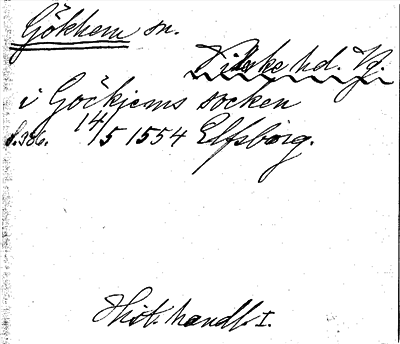 Gökhem sn.
Vilske hd. Vg.
i Gockjems socken
s. 386. 14/5 1554 Elfsborg.
Hist. handl. I.